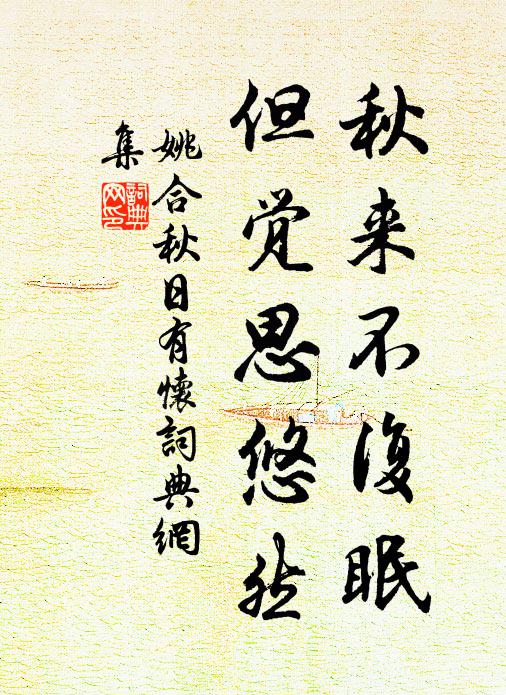 秋来不復眠
但觉思悠然
姚合秋日有懷詞典網
集
詞典
网印